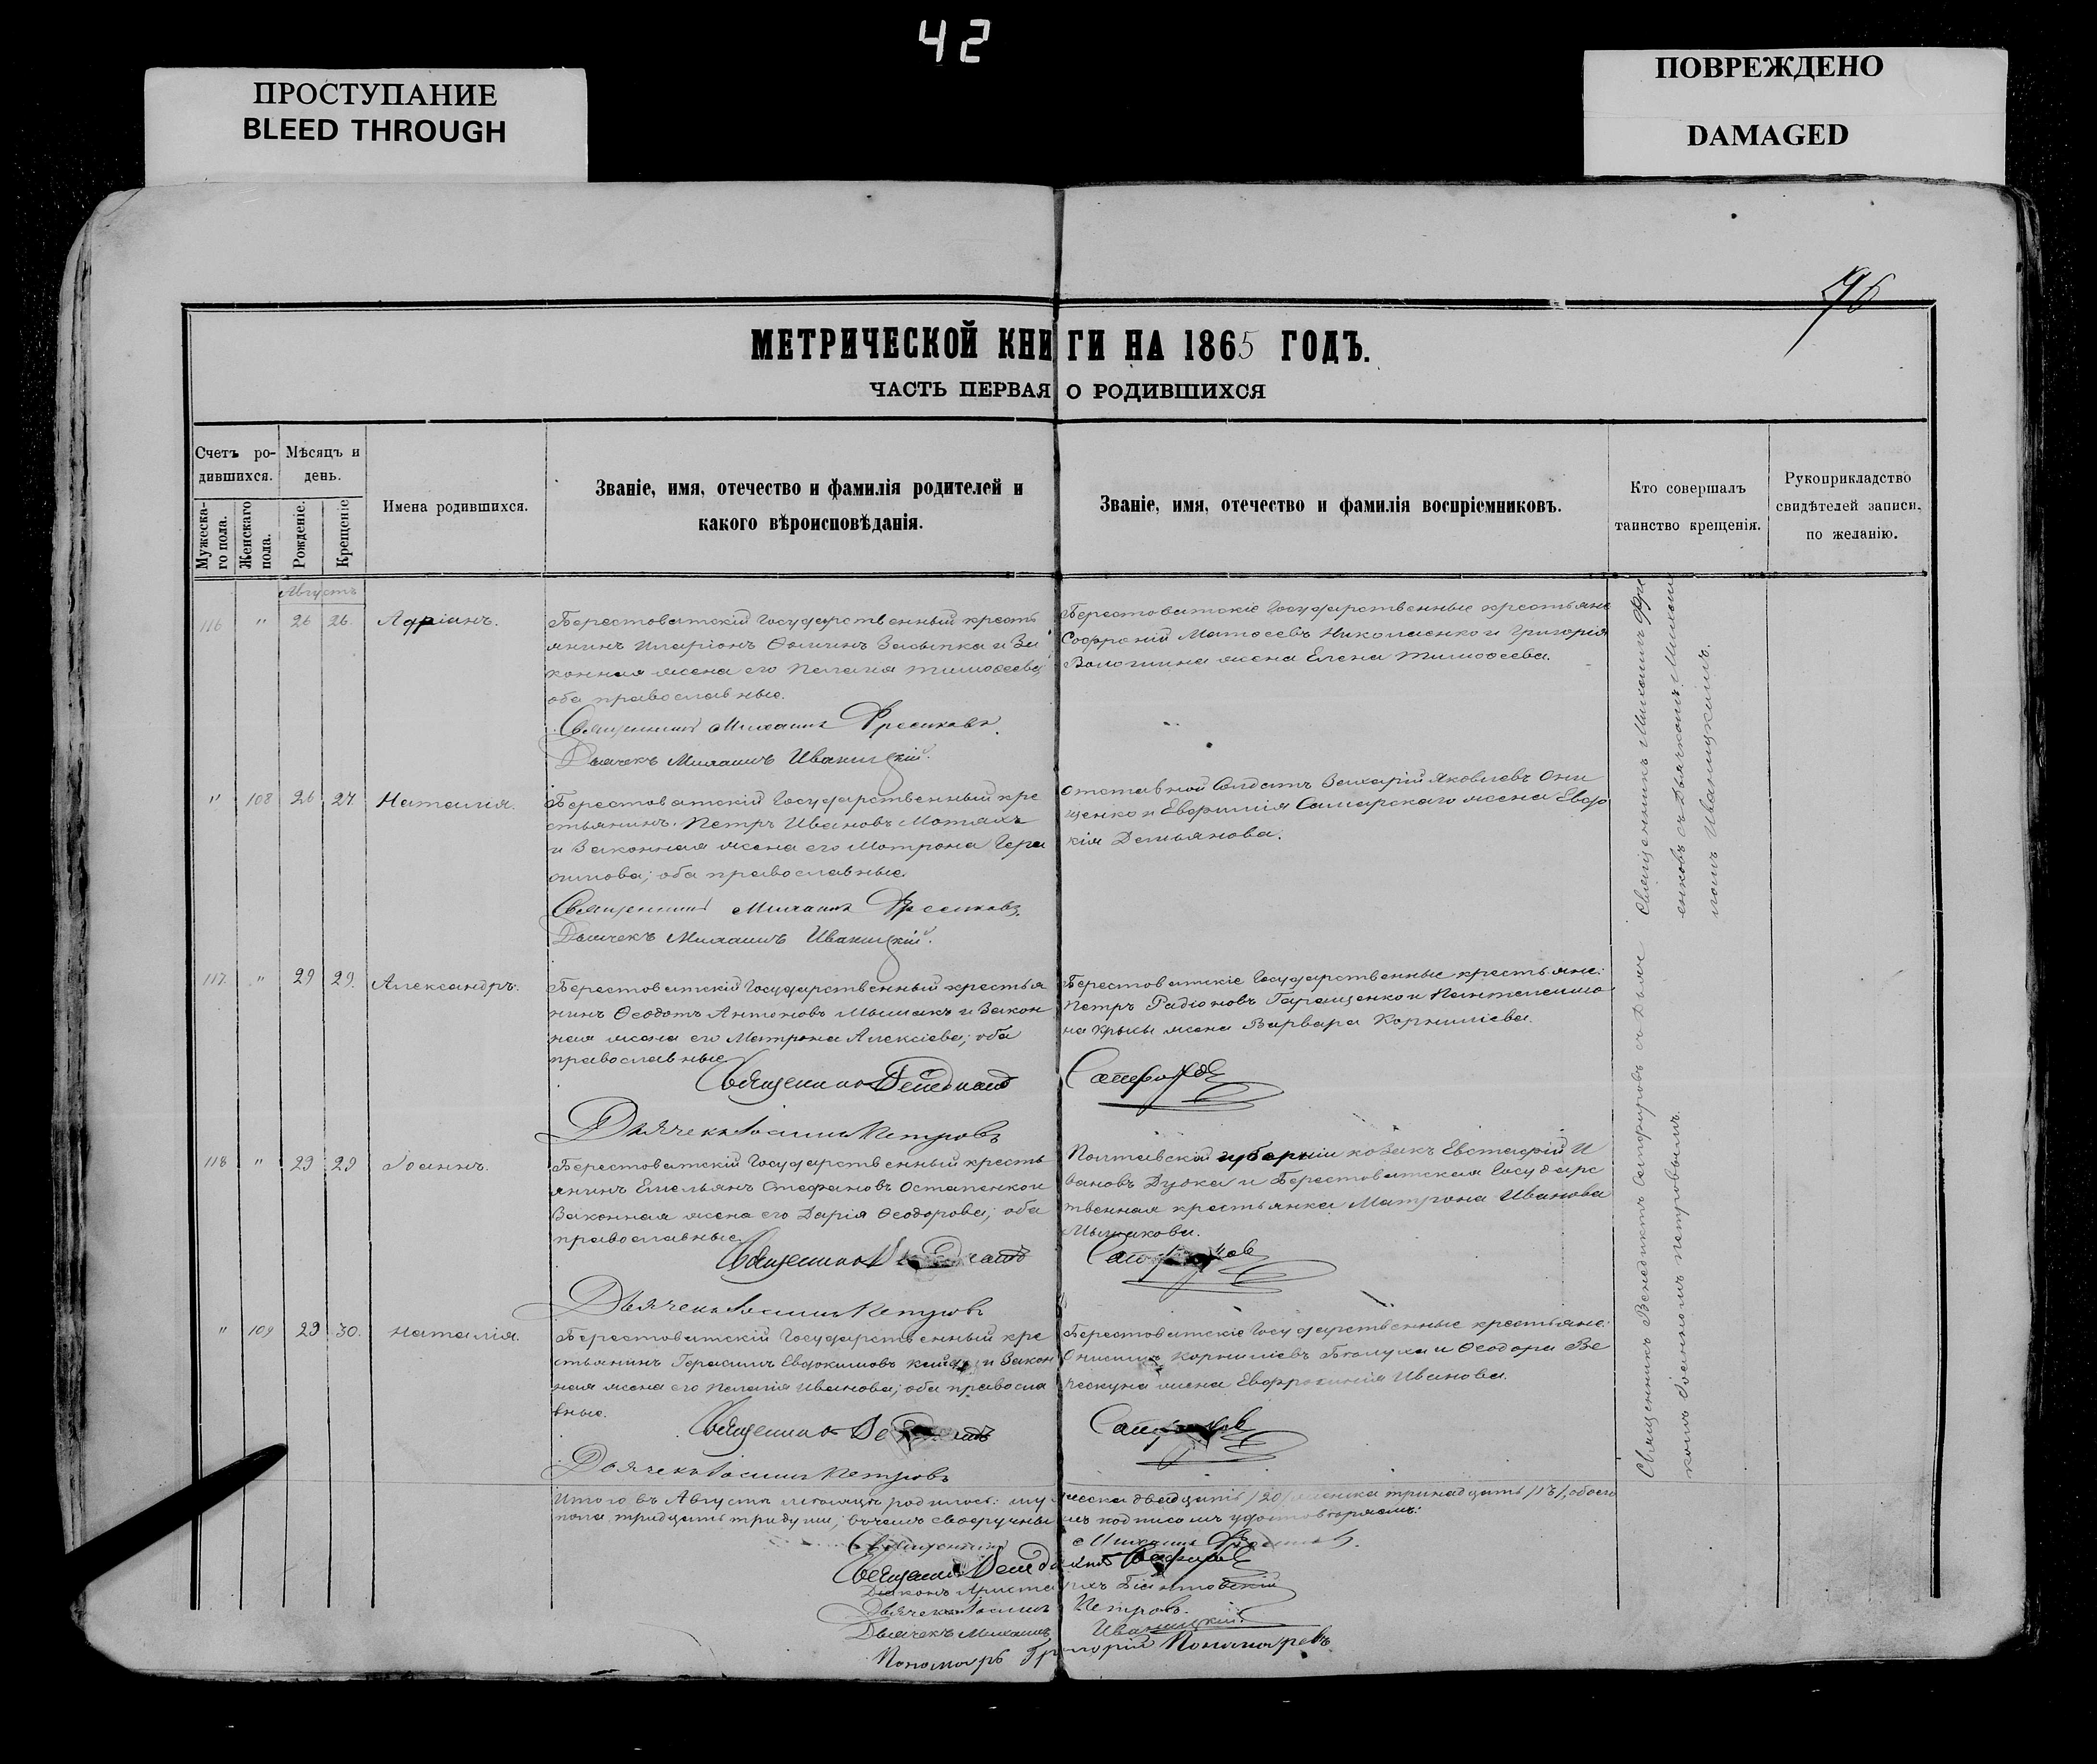 42
ПРОСТУПАНИЕ
BLEED THROUGH
ПОВРЕЖДЕНО
DAMAGED
МЕТРИЧЕСКОЙ КНИГИ НА 1865 ГОДЪ.
ЧАСТЬ ПЕРВАЯ О РОДИВШИХСЯ
Счетъ ро-
дившихся.
Мужеска-
го пола.
Женскаго
пола.
Мѣсяцъ и
день.
Рожденіе.
Крещеніе
Имена родившихся.
Званіе, имя, отечество и фамилія родителей и
какого вѣроисповѣданія.
Званіе, имя, отечество и фамилія воспріемниковъ.
Кто совершалъ
таинство крещенія.
Рукоприкладство
свидѣтелей записи,
по желанію.
Августъ
116 " 26 26. Адріанъ.
Берестоватскій Государственный кресть
янинъ Иларіонъ Засыпка и За
конная жена его Пелагія Тимоѳеева,
оба православные.
Священникъ Михаилъ
Дьячекъ Михаилъ Иваницкій.
Берестоватскіе Государственные крестьяне
Софроній Матѳеевъ Николаенко и Григорія
Волошина жена Елена Тимоѳеева.
" 108 26 27 Наталія.
Берестоватскій Государственный кре
стьянинъ Петръ Ивановъ Мотяхъ
и Законная жена его Матрона Гера
симова; оба православные.
Священникъ Михаилъ
Дьячекъ Михаилъ Иваницкій.
Отставной Солдатъ Захарій Яковлевъ Они
щенко и Евфимія Самарскаго жена Евдо
кія Демьянова.
117. " 29 29. Александръ.
Берестоватскій Государственный крестья
нинъ Ѳеодотъ Антоновъ и Закон
ная жена его Матрона Алексіева; оба
православные
Священникъ Венедиктъ Сапфировъ
Дьячекъ Іоаннъ Петровъ
Берестоватскіе Государственные крестьяне:
Петръ Радіоновъ Гаращенко и Пантелеимо
на Крысы жена Варвара Корниліева.
118 " 29 29 Іоаннъ.
Берестоватскій Государственный кресть
янинъ Емельянъ Стефановъ Остапенко и
Законная жена его Дарія Ѳеодорова; оба
православные.
Священникъ Венедиктъ Сапфировъ
Дьячекъ Іоаннъ Петровъ
Полтавской губерніи козакъ Евстафій И
вановъ Дудка и Берестоватская Государс
твенная крестьянка Матрона Иванова
" 109 29 30. Наталія.
Берестоватскій Государственный кре
стьянинъ Герасимъ Евдокимовъ и Закон
ная жена его Пелагія Иванова; оба правосла
вные.
Священникъ Венедиктъ Сапфировъ
Дьячекъ Іоаннъ Петровъ
Берестоватскіе Государственные крестьяне:
Онисимъ Корниліевъ и Ѳеодора Ве
жена Евфросинія Иванова.
Священникъ Михаилъ
съ Дьячкомъ Михаи
ломъ Иваницкимъ.
Священникъ Венедиктъ Сапфировъ съ Дьяч
комъ Іоанномъ Петровымъ.
Итого въ Августѣ мѣсяцѣ родилось: мужеска двадцать /20/ женска тринадцать /13/, обоего
пола тридцать три души; въ чемъ своеручнымъ подписомъ удостовѣряемъ:
Священникъ Михаилъ
Священникъ Венедиктъ Сапфировъ
Діаконъ
Дьячекъ Іоаннъ Петровъ.
Дьячекъ Михаилъ Иваницкій
Пономарь Григорій Пономаревъ